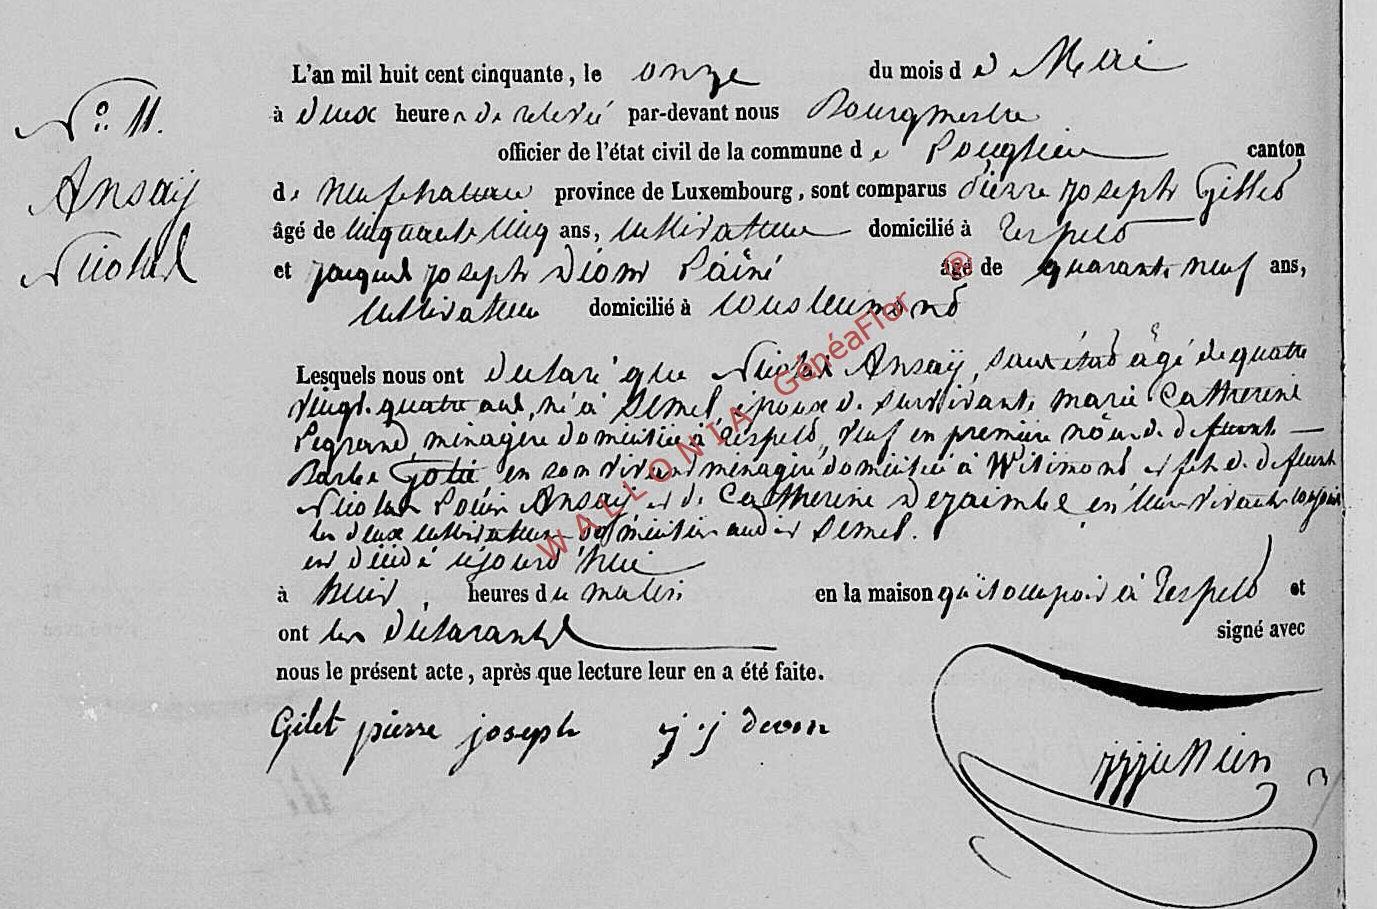 L'an mil huit cent cinquante, le onze du mois d e Mai
N° 11. à deux heures de relevé par-devant nous Bourgmestre
officier de l'état civil de la commune d e canton
Ansaÿ de neufchateau province de Luxembourg, sont comparus Pierre joseph Gilles
âgé de cinquante cinq ans, cultivateur domicilié à Respelt
Nicolas et jacques joseph l'ainé âgé de quarante neuf ans,
cultivateur domicilié à
Lesquels nous ont declaré que Nicolas Ansaÿ, sans état âgé de quatre
vingt quatre ans, né à Semel, époux de survivante marie Catherine
Pegrand, ménagère domiciliée à Respelt, veuf en première nôce de defunte
Barbe en son vivant ménagère domiciliée à Witimont et fils de defunt
Nicolas Ansaÿ et de Catherine en leur vivant conjoints
les deux cultivateurs domiciliés audit Semel.
est décédé aujourd'hui
à huit heures du matin en la maison qu'il occupoit à Respelt et
ont les declarants signé avec
nous le présent acte, après que lecture leur en a été faite.
Gilet pierre joseph j.j devon
WALLONIA GénéaFlor ®